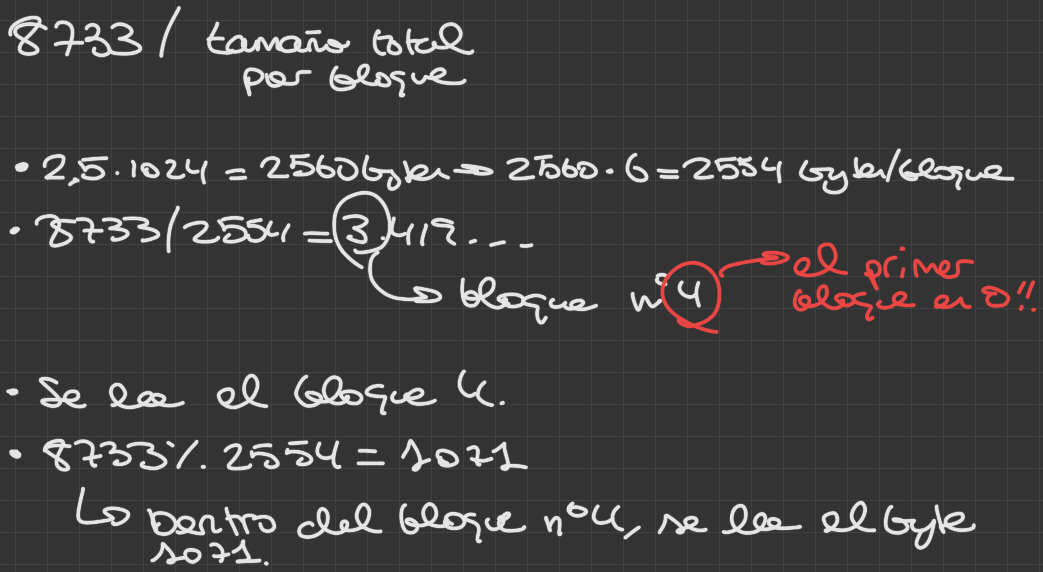 8733 / tamaño total
por bloque
• 2,5 · 1024 = 2560 bytes → 2560 - 6 = 2554 bytes/bloque
• 8733/2554 = 3.419....
→ bloque nº 4 → el primer
bloque es 0!!
• Se lee el bloque 4.
• 8733 % 2554 = 1071
↳ Dentro del bloque nº 4, se lee el byte
1071.